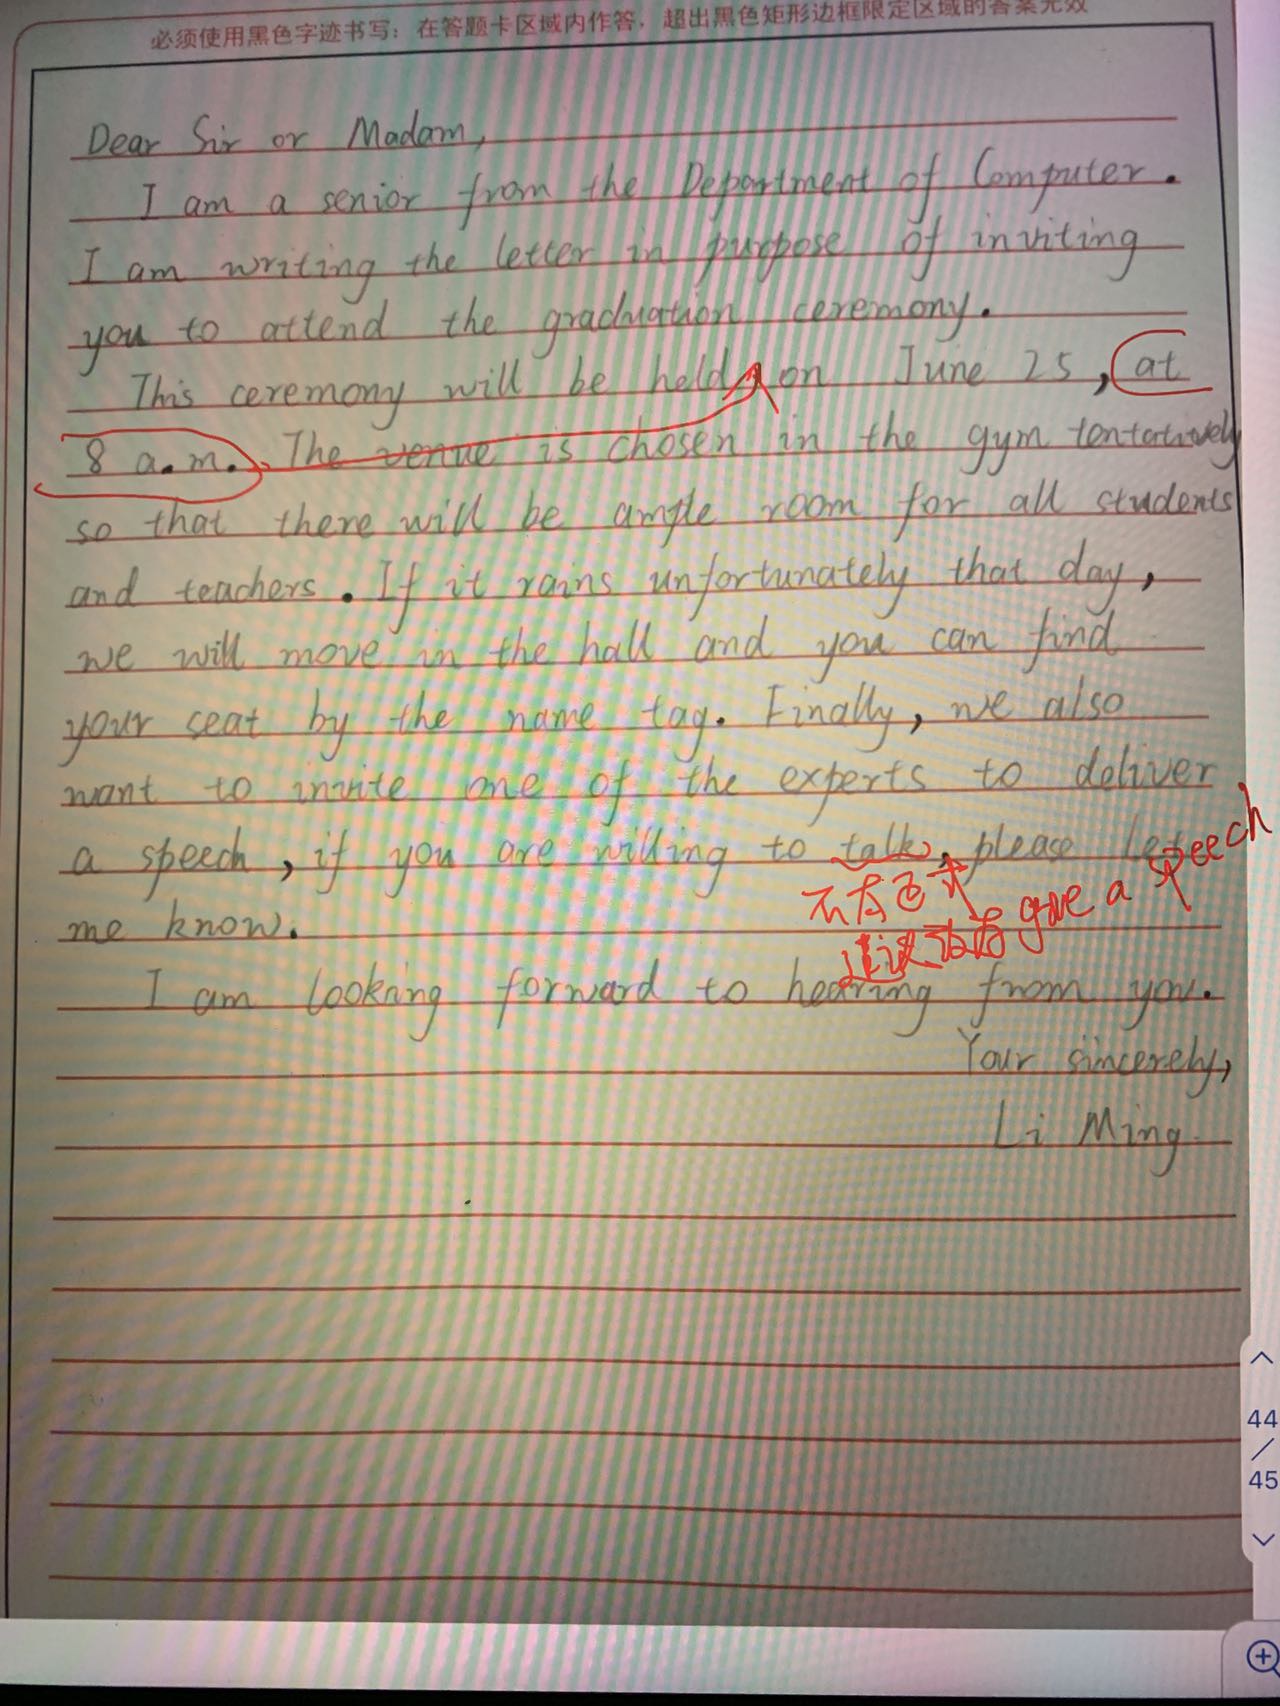 必须使用黑色字迹书写：在答题卡区域内作答，超出黑色矩形边框限定区域的答案无效
Dear Sir or Madam,
I am a senior from the Department of Computer.
I am writing the letter in purpose of inviting
you to attend the graduation ceremony.
This ceremony will be held on June 25, at
8 a.m.. The venue is chosen in the gym tentatively
so that there will be ample room for all students
and teachers. If it rains unfortunately that day,
we will move in the hall and you can find
your seat by the name tag. Finally, we also
want to invite one of the experts to deliver
a speech, if you are willing to talk, please let
me know.
不有
建议改为 give a speech
I am looking forward to hearing from you.
Your sincerely,
Li Ming
44
/
45